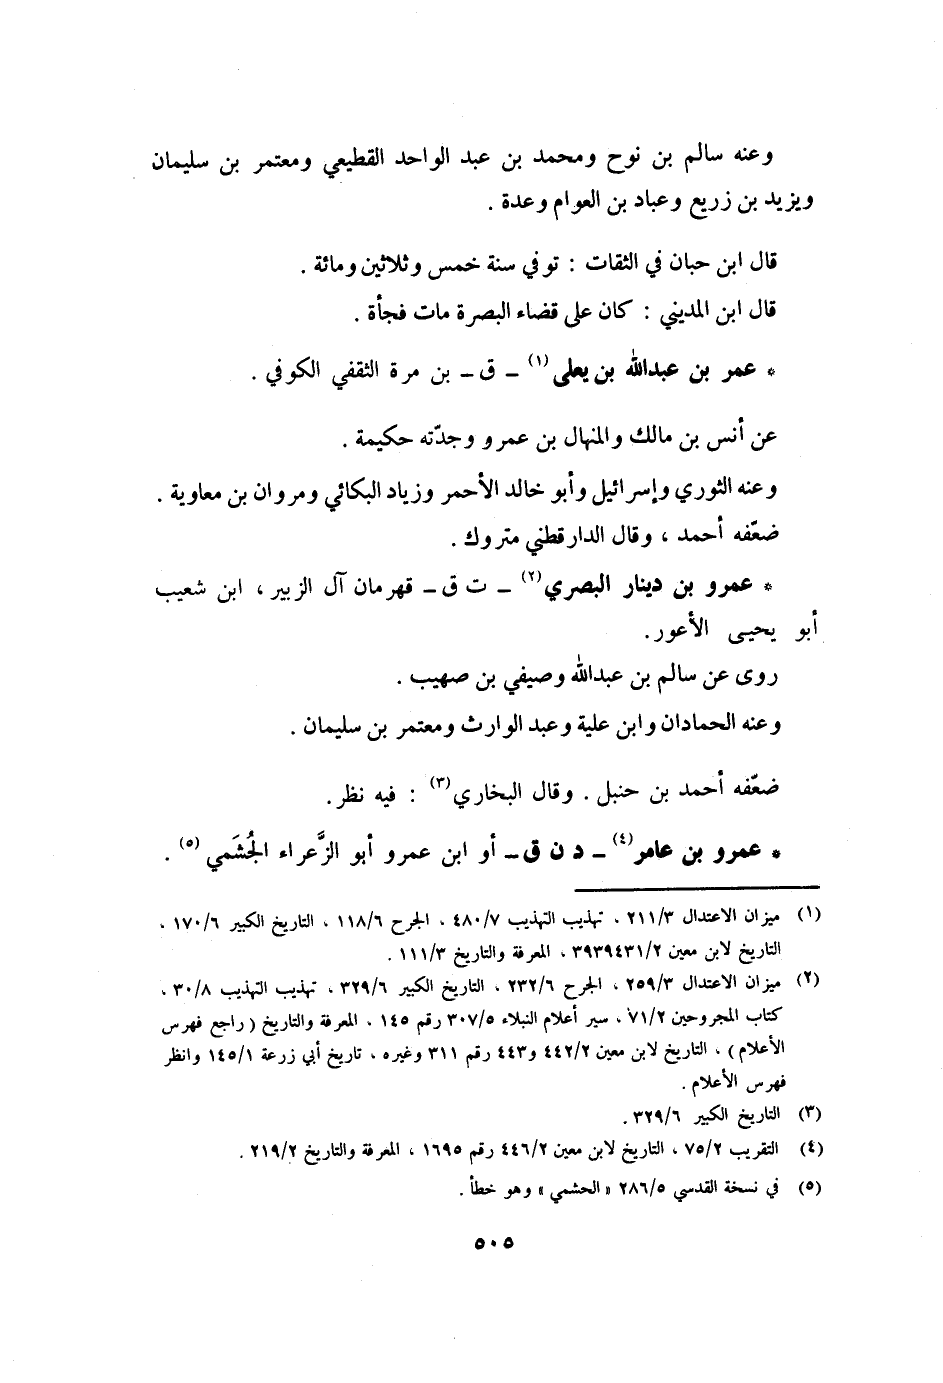 وعنه سالم بن نوح ومحمد بن عبد الواحد القطيعي ومعتمر بن سليمان
ويزيد بن زريع وعباد بن العوام وعدة .
قال ابن حبان في الثقات : توفي سنة خمس وثلاثين ومائة .
قال ابن المديني : كان على قضاء البصرة مات فجأة .
* عمر بن عبدالله بن يعلى (١) ـ ق ـ بن مرة الثقفي الكوفي .
عن أنس بن مالك والمنهال بن عمرو وجدّته حكيمة .
وعنه الثوري وإسرائيل وأبو خالد الأحمر وزياد البكائي ومروان بن معاوية .
ضعّفه أحمد ، وقال الدارقطني متروك .
* عمرو بن دينار البصري (٢) ـ ت ق ـ قهرمان آل الزبير ، ابن شعيب
أبو يحيى الأعور .
روى عن سالم بن عبدالله وصيفي بن صهيب .
وعنه الحمادان وابن علية وعبد الوارث ومعتمر بن سليمان .
ضعّفه أحمد بن حنبل . وقال البخاري (٣) : فيه نظر .
* عمرو بن عامر (٤) ـ د ن ق ـ أو ابن عمرو أبو الزَّعراء الجُشَمي (٥) .
(١) ميزان الاعتدال ٢١١/٣ ، تهذيب التهذيب ٤٨٠/٧ ، الجرح ١١٨/٦ ، التاريخ الكبير ١٧٠/٦ ،
التاريخ لابن معين ٣٩٣٩٤٣١/٢ ، المعرفة والتاريخ ١١١/٣ .
(٢) ميزان الاعتدال ٢٥٩/٣ ، الجرح ٢٣٢/٦ ، التاريخ الكبير ٣٢٩/٦ ، تهذيب التهذيب ٣٠/٨ ،
كتاب المجروحين ٧١/٢ ، سير أعلام النبلاء ٣٠٧/٥ رقم ١٤٥ ، المعرفة والتاريخ ( راجع فهرس
الأعلام ) ، التاريخ لابن معين ٤٤٢/٢ و٤٤٣ رقم ٣١١ وغيره ، تاريخ أبي زرعة ١٤٥/١ وانظر
فهرس الأعلام .
(٣) التاريخ الكبير ٣٢٩/٦ .
(٤) التقريب ٧٥/٢ ، التاريخ لابن معين ٤٤٦/٢ رقم ١٦٩٥ ، المعرفة والتاريخ ٢١٩/٢ .
(٥) في نسخة القدسي ٢٨٦/٥ «الحشمي» وهو خطأ .
٥٠٥